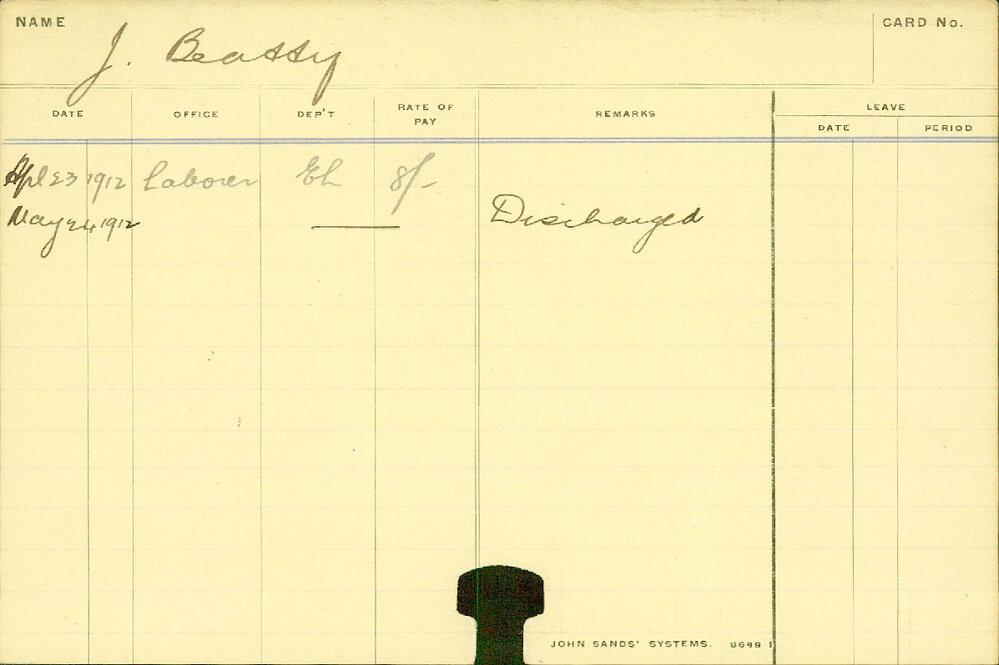 NAME J. Beatty CARD No.
DATE OFFICE DEP'T RATE OF PAY REMARKS LEAVE
DATE PERIOD
Apl 23 1912 Laborer El 8/-
May 24 1912 Discharged
JOHN SANDS' SYSTEMS.